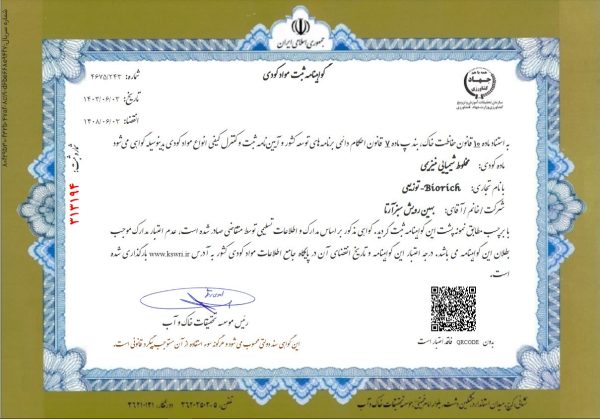 جمهوری اسلامی ایران
گواهینامه ثبت مواد کودی
شماره: ۴۶۷۵/۲۴۳
تاریخ: ۱۴۰۳/۰۶/۰۳
انقضاء: ۱۴۰۸/۰۶/۰۳
همه با هم
جهاد
کشاورزی
شماره ثبت:
۳۱۳۱۹۴
به استناد ماده ۱۰ قانون حفاظت خاک، بند پ ماده ۷ قانون احکام دائمی برنامه‌های توسعه کشور و آیین‌نامه ثبت و کنترل کیفی انواع مواد کودی بدینوسیله گواهی می‌شود
ماده کودی: مخلوط شیمیایی نیتروژنی
با نام تجاری: Biorich- توزیعی
شرکت / خانم / آقای: بهین رویش سبز آرتا
با برچسب مطابق نمونه پشت این گواهینامه ثبت گردید. گواهی مذکور بر اساس مدارک و اطلاعات تسلیمی توسط متقاضی صادر شده است. عدم اعتبار مدارک موجب
بطلان این گواهینامه می باشد. درجه اعتبار این گواهینامه و تاریخ انقضای آن در پایگاه جامع اطلاعات مواد کودی کشور به آدرس www.kswri.ir بارگذاری شده
است.
رئیس موسسه تحقیقات خاک و آب
بدون QRCODE فاقد اعتبار است
این گواهی سند دولتی محسوب می شود و هرگونه سوء استفاده از آن مستوجب پیگرد قانونی است.